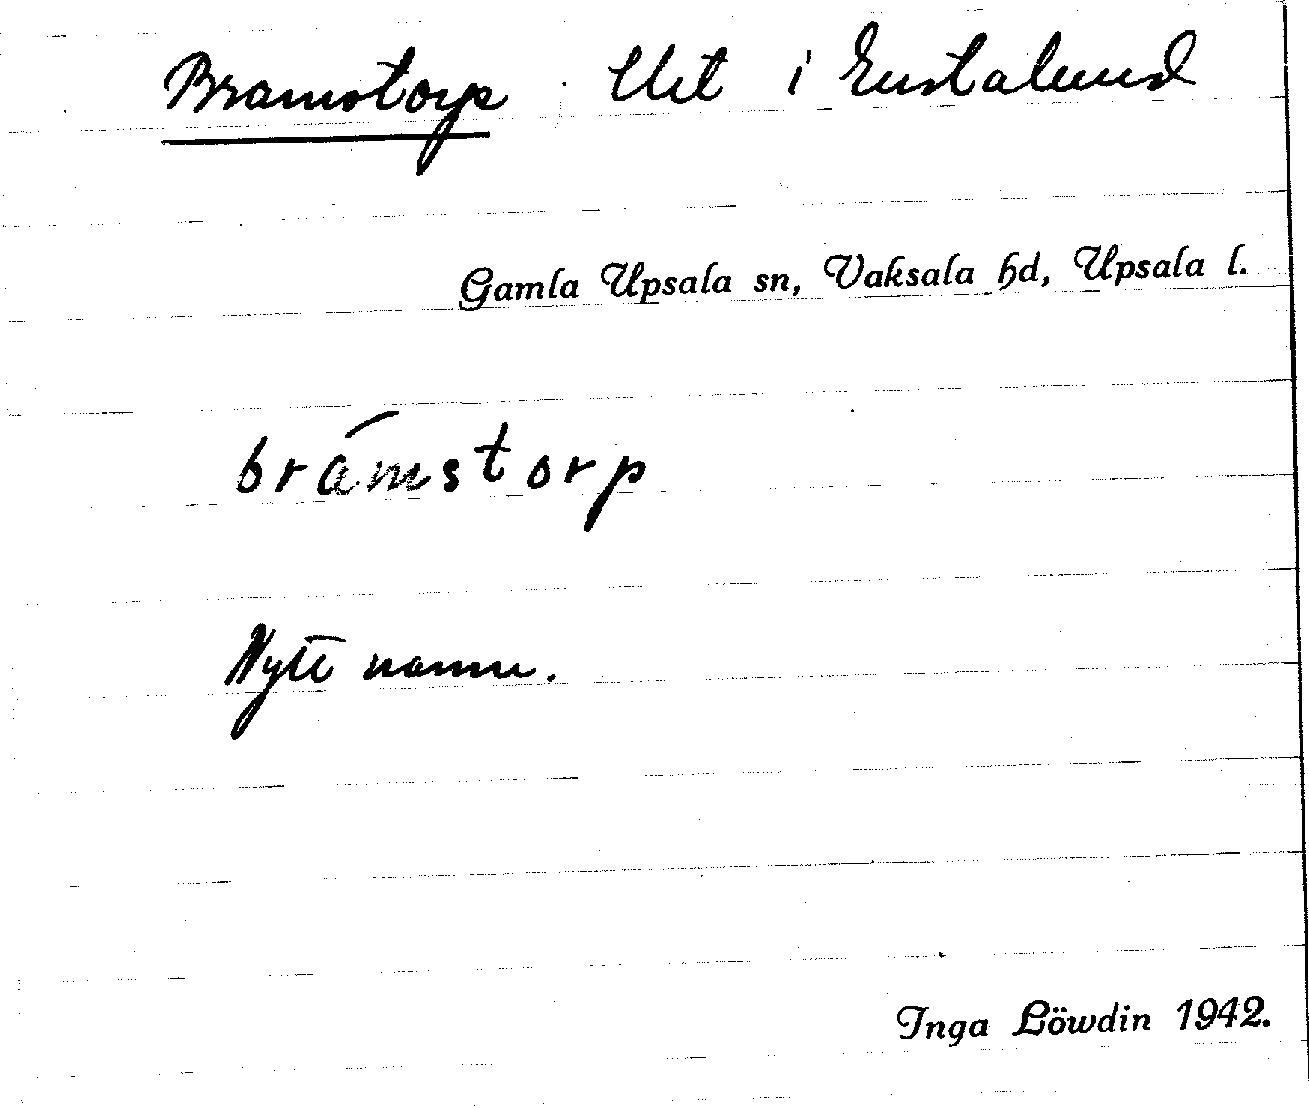 Bramstorp Uet i Enstalund
Gamla Upsala sn, Vaksala hd, Upsala l.
brámstorp
Nytt namn.
Inga Löwdin 1942.